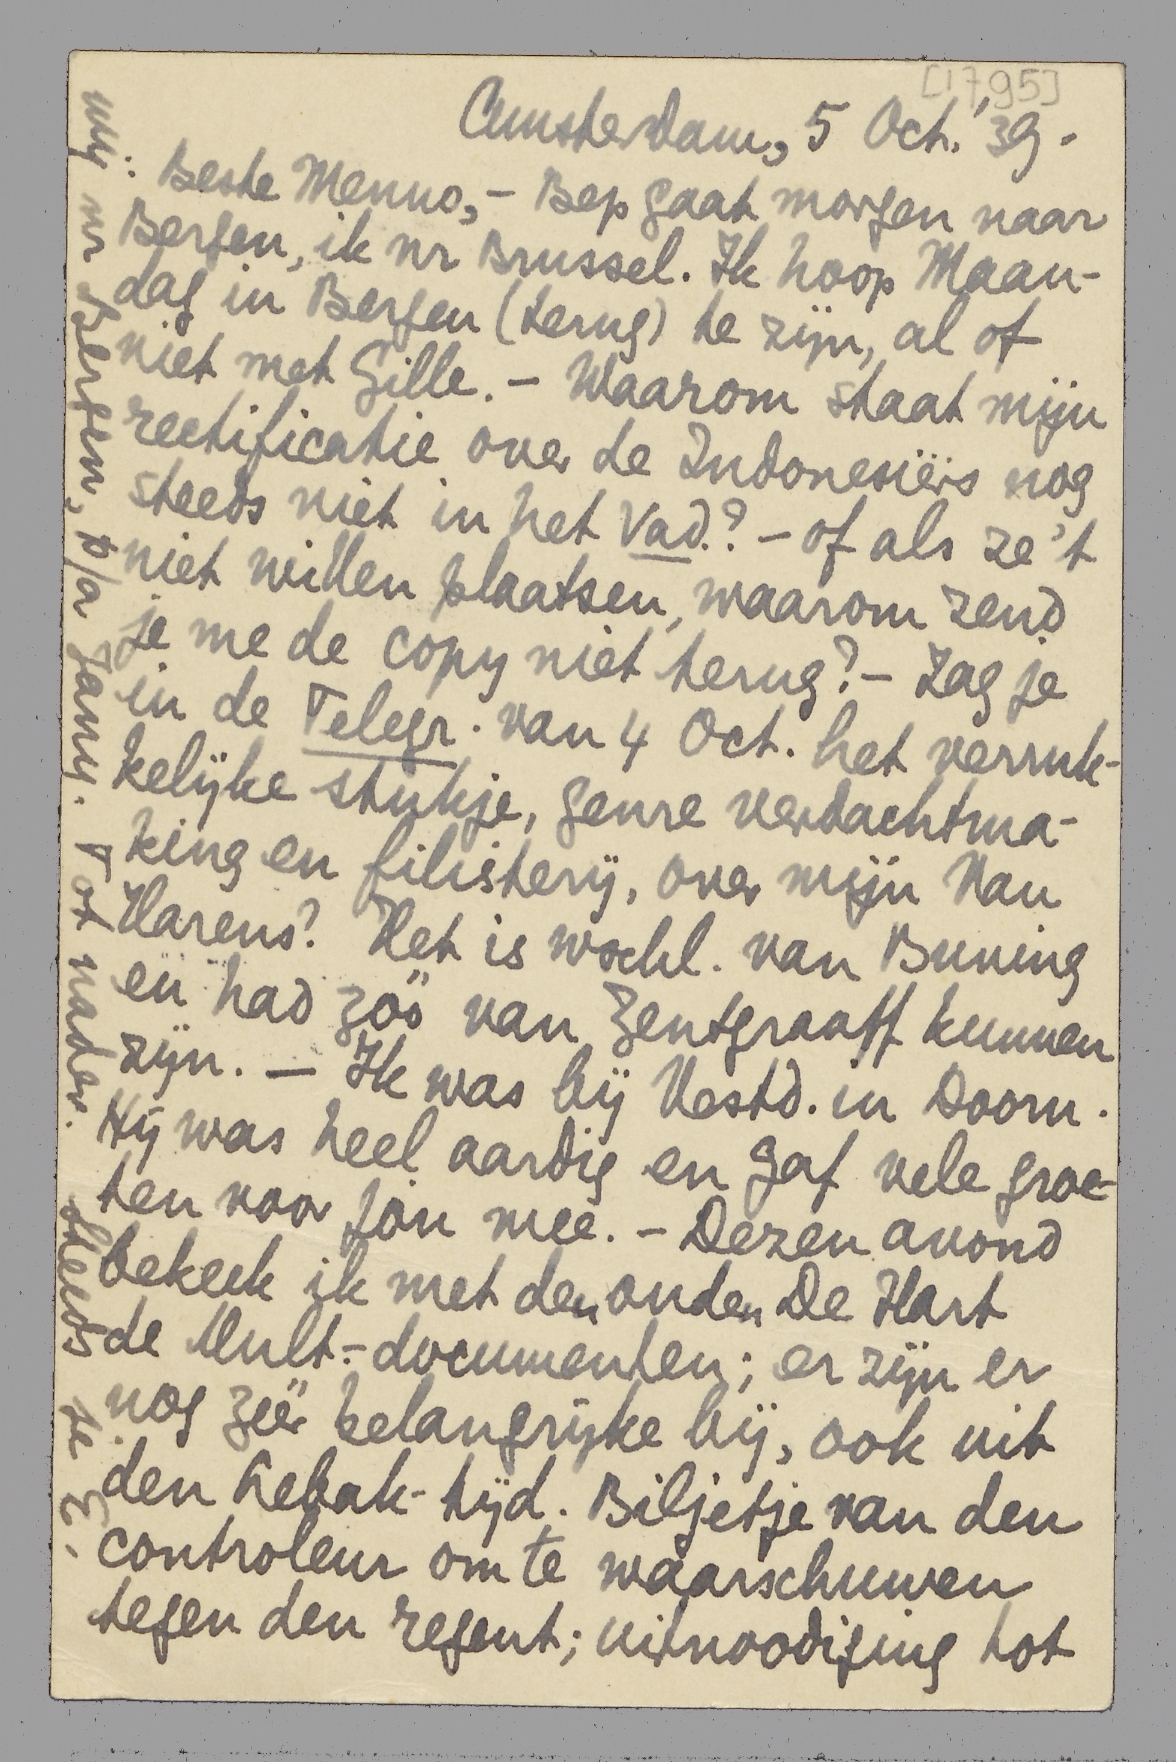 [1795]
Amsterdam, 5 Oct. '39.
Beste Menno, – Bep gaat morgen naar
Bergen, ik nr Brussel. Ik hoop Maan-
dag in Bergen (terug) te zijn, al of
niet met Gille. – Waarom staat mijn
rectificatie over de Indonesiërs nog
steeds niet in het Vad.? – of als ze 't
niet willen plaatsen, waarom zend
je me de copy niet terug? – Zag je
in de Telegr. van 4 Oct. het verruk-
kelijke stukje, genre verdachtma-
king en filisterij, over mijn Van
Harens? Het is wschl. van Buning
en had zóó van Zentgraaff kunnen
zijn. – Ik was bij Vestd. in Doorn.
Hij was heel aardig en gaf vele groe-
ten voor jou mee. – Dezen avond
bekeek ik met den ouden De Hart
de Mult.-documenten; er zijn er
nog zéér belangrijke bij, ook uit
den Lebak-tijd. Biljetje van den
controleur om te waarschuwen
tegen den regent; uitnoodiging tot
mij nr Bergen, p/a Jany. Tot nader. steeds je E.